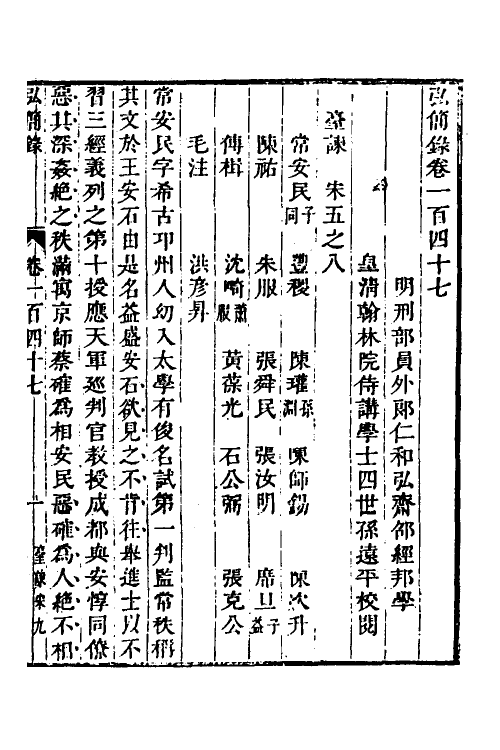 弘簡錄卷一百四十七
明刑部員外郎仁和弘齋邵經邦學
皇淸翰林院侍講學士四世孫遠平校閱
臺諫　宋五之八
常安民子同　豐稷　陳瓘孫淵　陳師錫　陳次升
陳祐　朱服　張舜民　張汝明　席旦子益
傅楫　沈畸蕭服　黃葆光　石公弼　張克公
毛注　洪彥昇
常安民字希古邛州人幼入太學有俊名試第一判監常秩稱
其文於王安石由是名益盛安石欲見之不肯往舉進士以不
習三經義列之第十授應天軍巡判官教授成都與安惇同僚
惡其深姦絶之秩滿寓京師蔡確爲相安民惡確爲人絶不相
弘簡錄　卷一百四十七　一　臺諫宋九